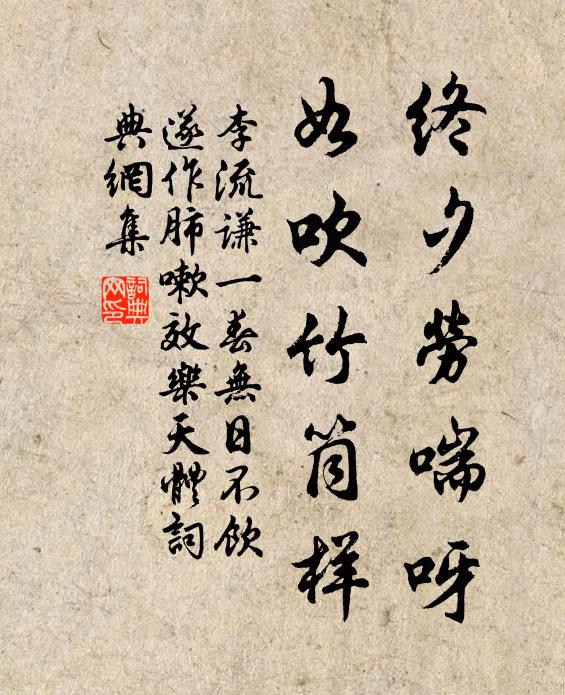 终夕劳喘呀
如吹竹筒样
李流谦一春無日不飲
遂作肺嗽效樂天體詞
典網集
詞典
网印